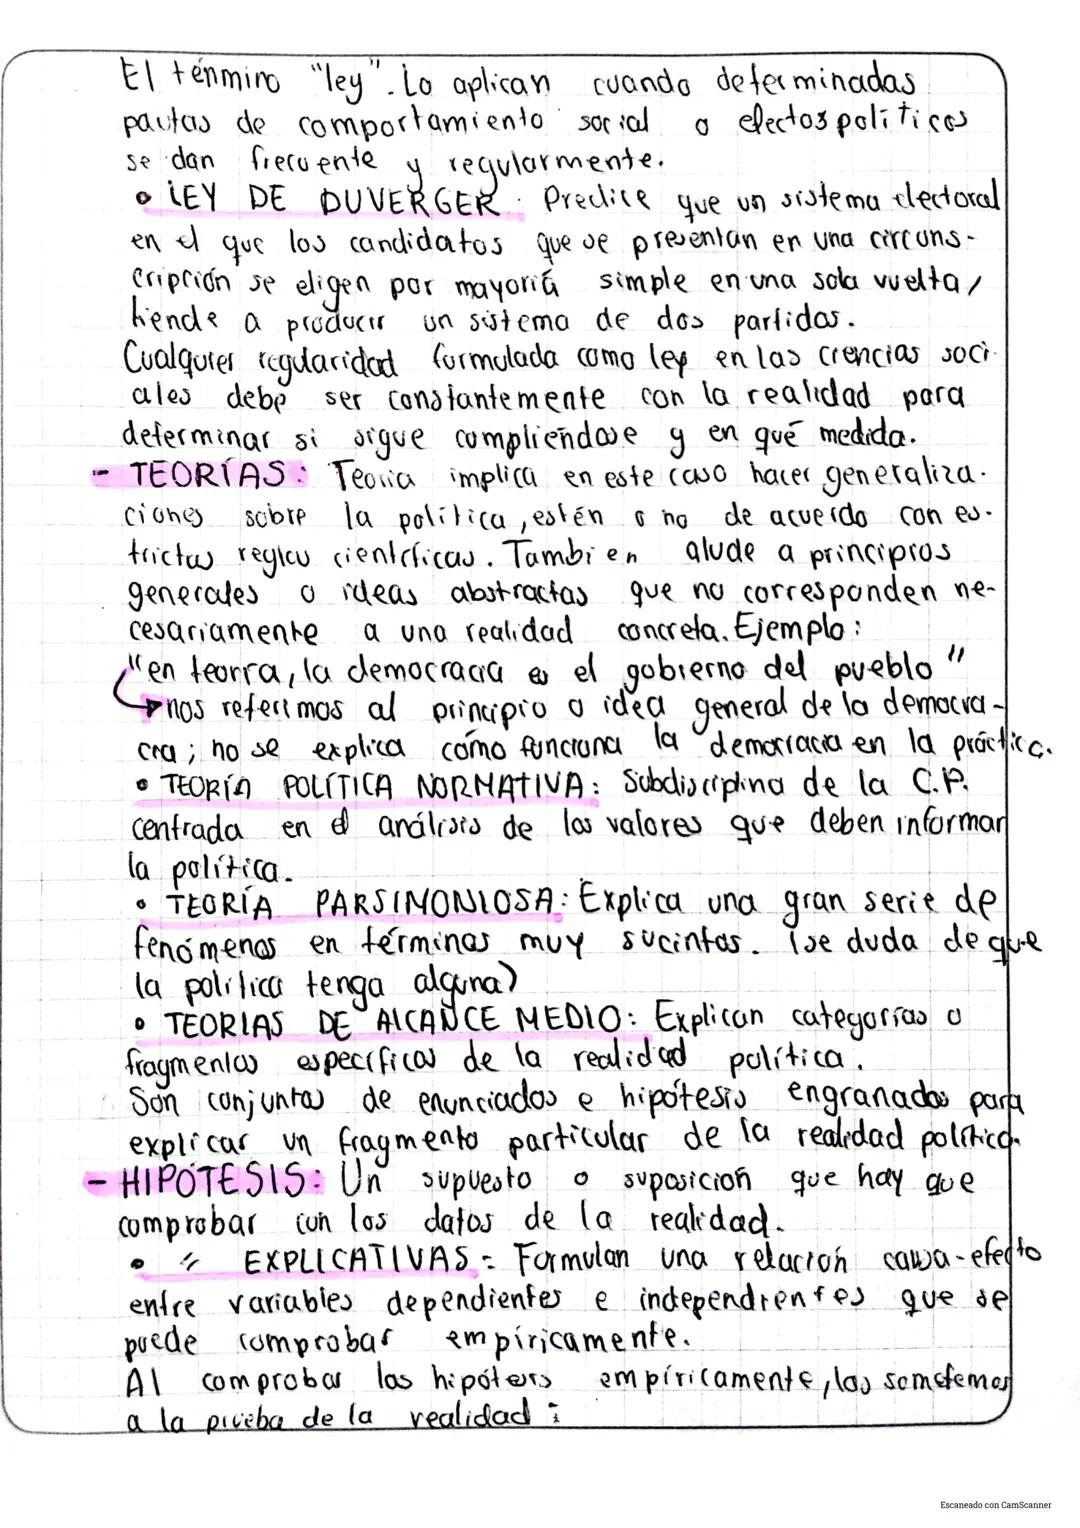 El término "ley". Lo aplican cuando determinadas
pautas de comportamiento social o efectos políticos
se dan frecuente y regularmente.
• LEY DE DUVERGER. Predice que un sistema electoral
en el que los candidatos que se presentan en una circuns-
cripción se eligen por mayoría simple en una sola vuelta,
tiende a producir un sistema de dos partidos.
Cualquier regularidad formulada como ley en las ciencias soci-
ales debe ser constantemente con la realidad para
determinar si sigue compliéndose y en qué medida.
- TEORÍAS: Teoría implica en este caso hacer generaliza-
ciones sobre la política, estén o no de acuerdo con es-
trictas reglas científicas. Tambien alude a principios
generales o ideas abstractas que no corresponden ne-
cesariamente a una realidad concreta. Ejemplo:
"en teoría, la democracia es el gobierno del pueblo"
nos referimos al principio o idea general de la democra-
cia; no se explica cómo funciona la democracia en la práctica.
• TEORÍA POLÍTICA NORMATIVA: Subdisciplina de la C.P.
centrada en el análisis de los valores que deben informar
la política.
• TEORÍA PARSIMONIOSA: Explica una gran serie de
fenómenos en términos muy sucintos. (se duda de que
la política tenga alguna)
• TEORIAS DE ALCANCE MEDIO: Explican categorías o
fragmentos específicos de la realidad política.
Son conjuntos de enunciados e hipótesis engranados para
explicar un fragmento particular de la realidad política.
- HIPÓTESIS: Un supuesto o suposición que hay que
comprobar con los datos de la realidad.
• " EXPLICATIVAS: Formulan una relación causa-efecto
entre variables dependientes e independientes que se
puede comprobar empíricamente.
Al comprobar las hipótesis empíricamente, las sometemos
a la prueba de la realidad:
Escaneado con CamScanner